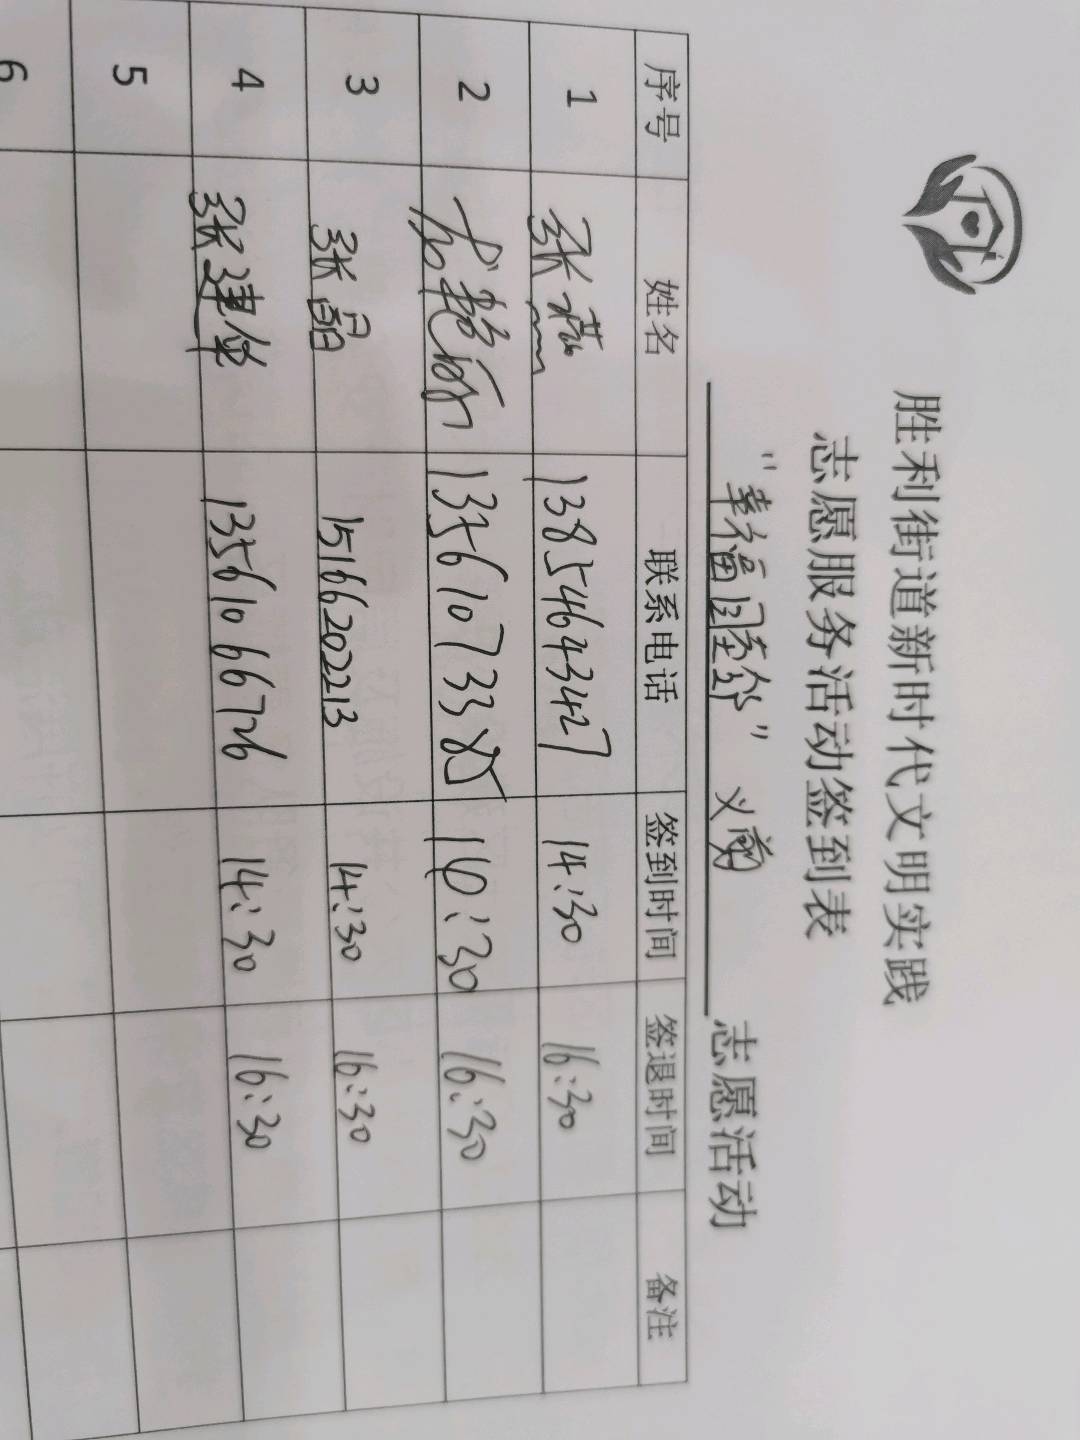 胜利街道新时代文明实践
志愿服务活动签到表
"幸福团圆" 义剪 志愿活动
序号 姓名 联系电话 签到时间 签退时间 备注
1 张 13854643427 14:30 16:30
2 13561073385 14:30 16:30
3 张晶 15166202213 14:30 16:30
4 张建 13561066726 14:30 16:30
5
6